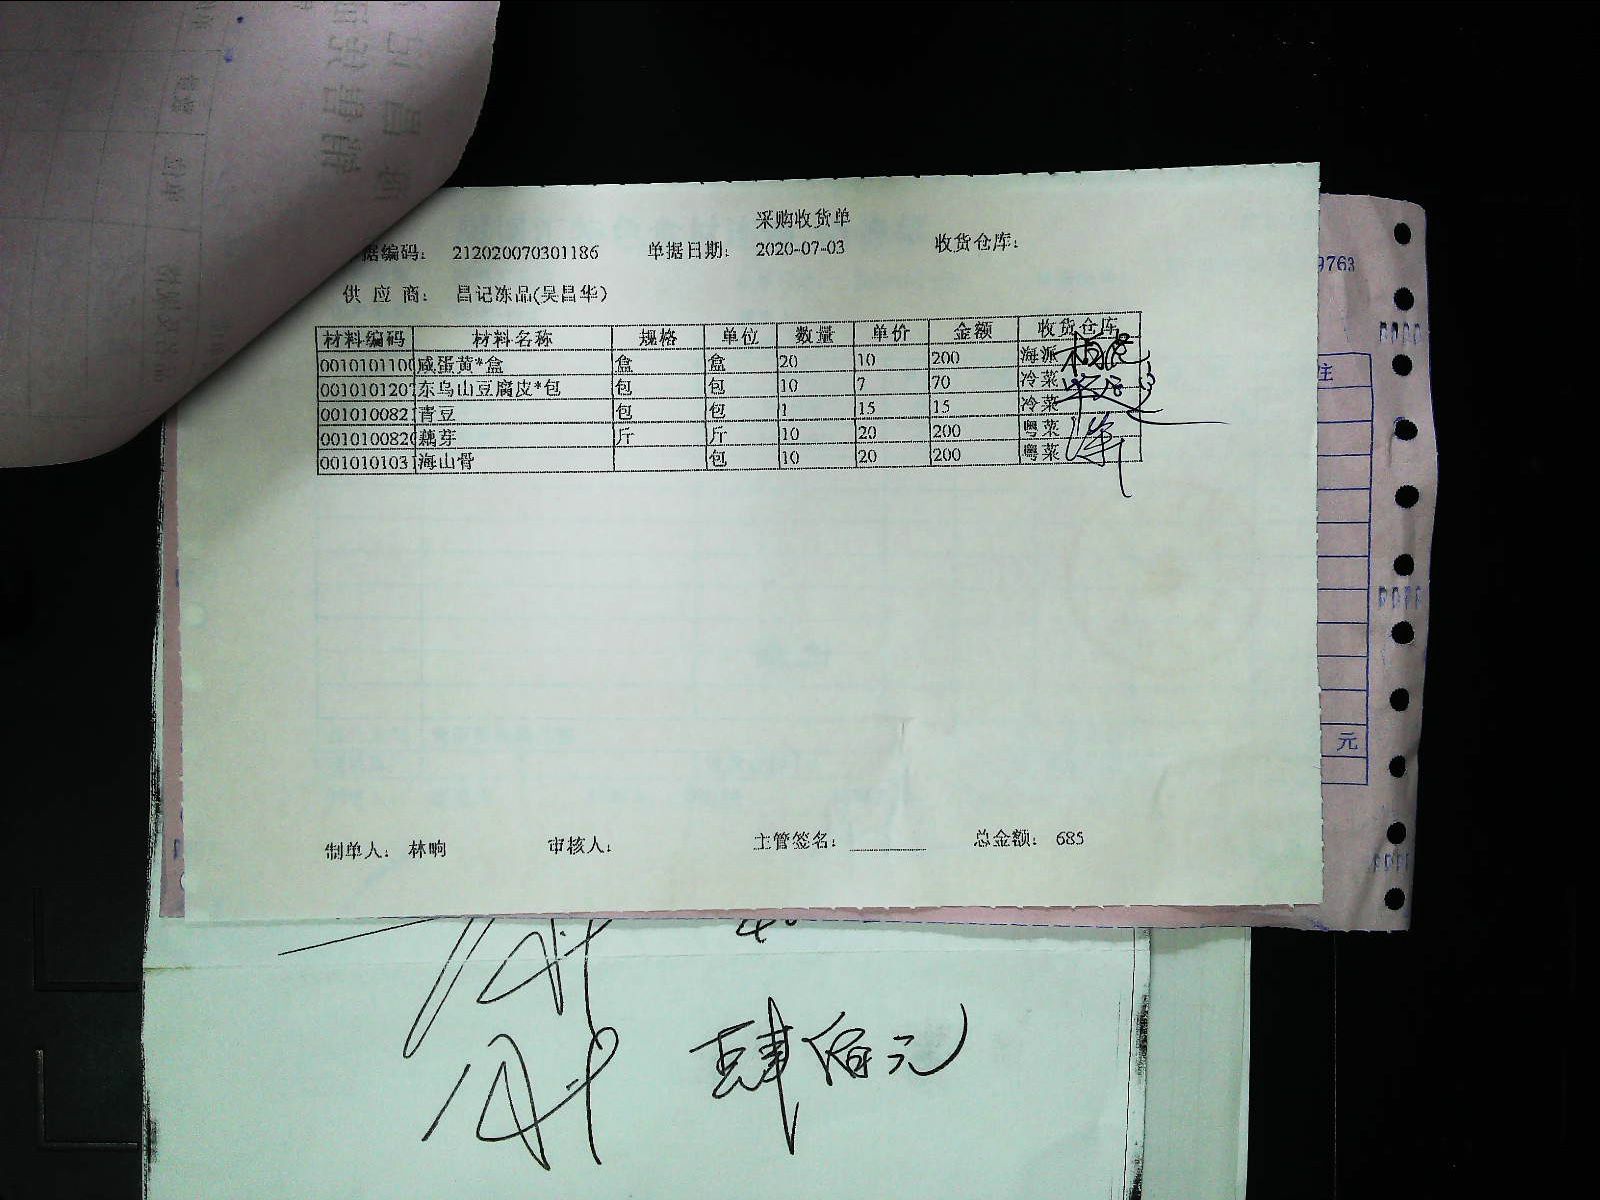 采购收货单
据编码： 212020070301186 单据日期： 2020-07-03 收货仓库：
供 应 商： 昌记冻品(吴昌华)
材料编码 材料名称 规格 单位 数量 单价 金额 收货仓库
0010101100 咸蛋黄*盒 盒 盒 20 10 200 海派
0010101207 东乌山豆腐皮*包 包 包 10 7 70 冷菜
001010082 青豆 包 包 1 15 15 冷菜
0010100820 藕芽 斤 斤 10 20 200 粤菜
001010103 海山骨 包 10 20 200 粤菜
制单人： 林晌 审核人： 主管签名： 总金额： 685
9763
注
元
肆佰元